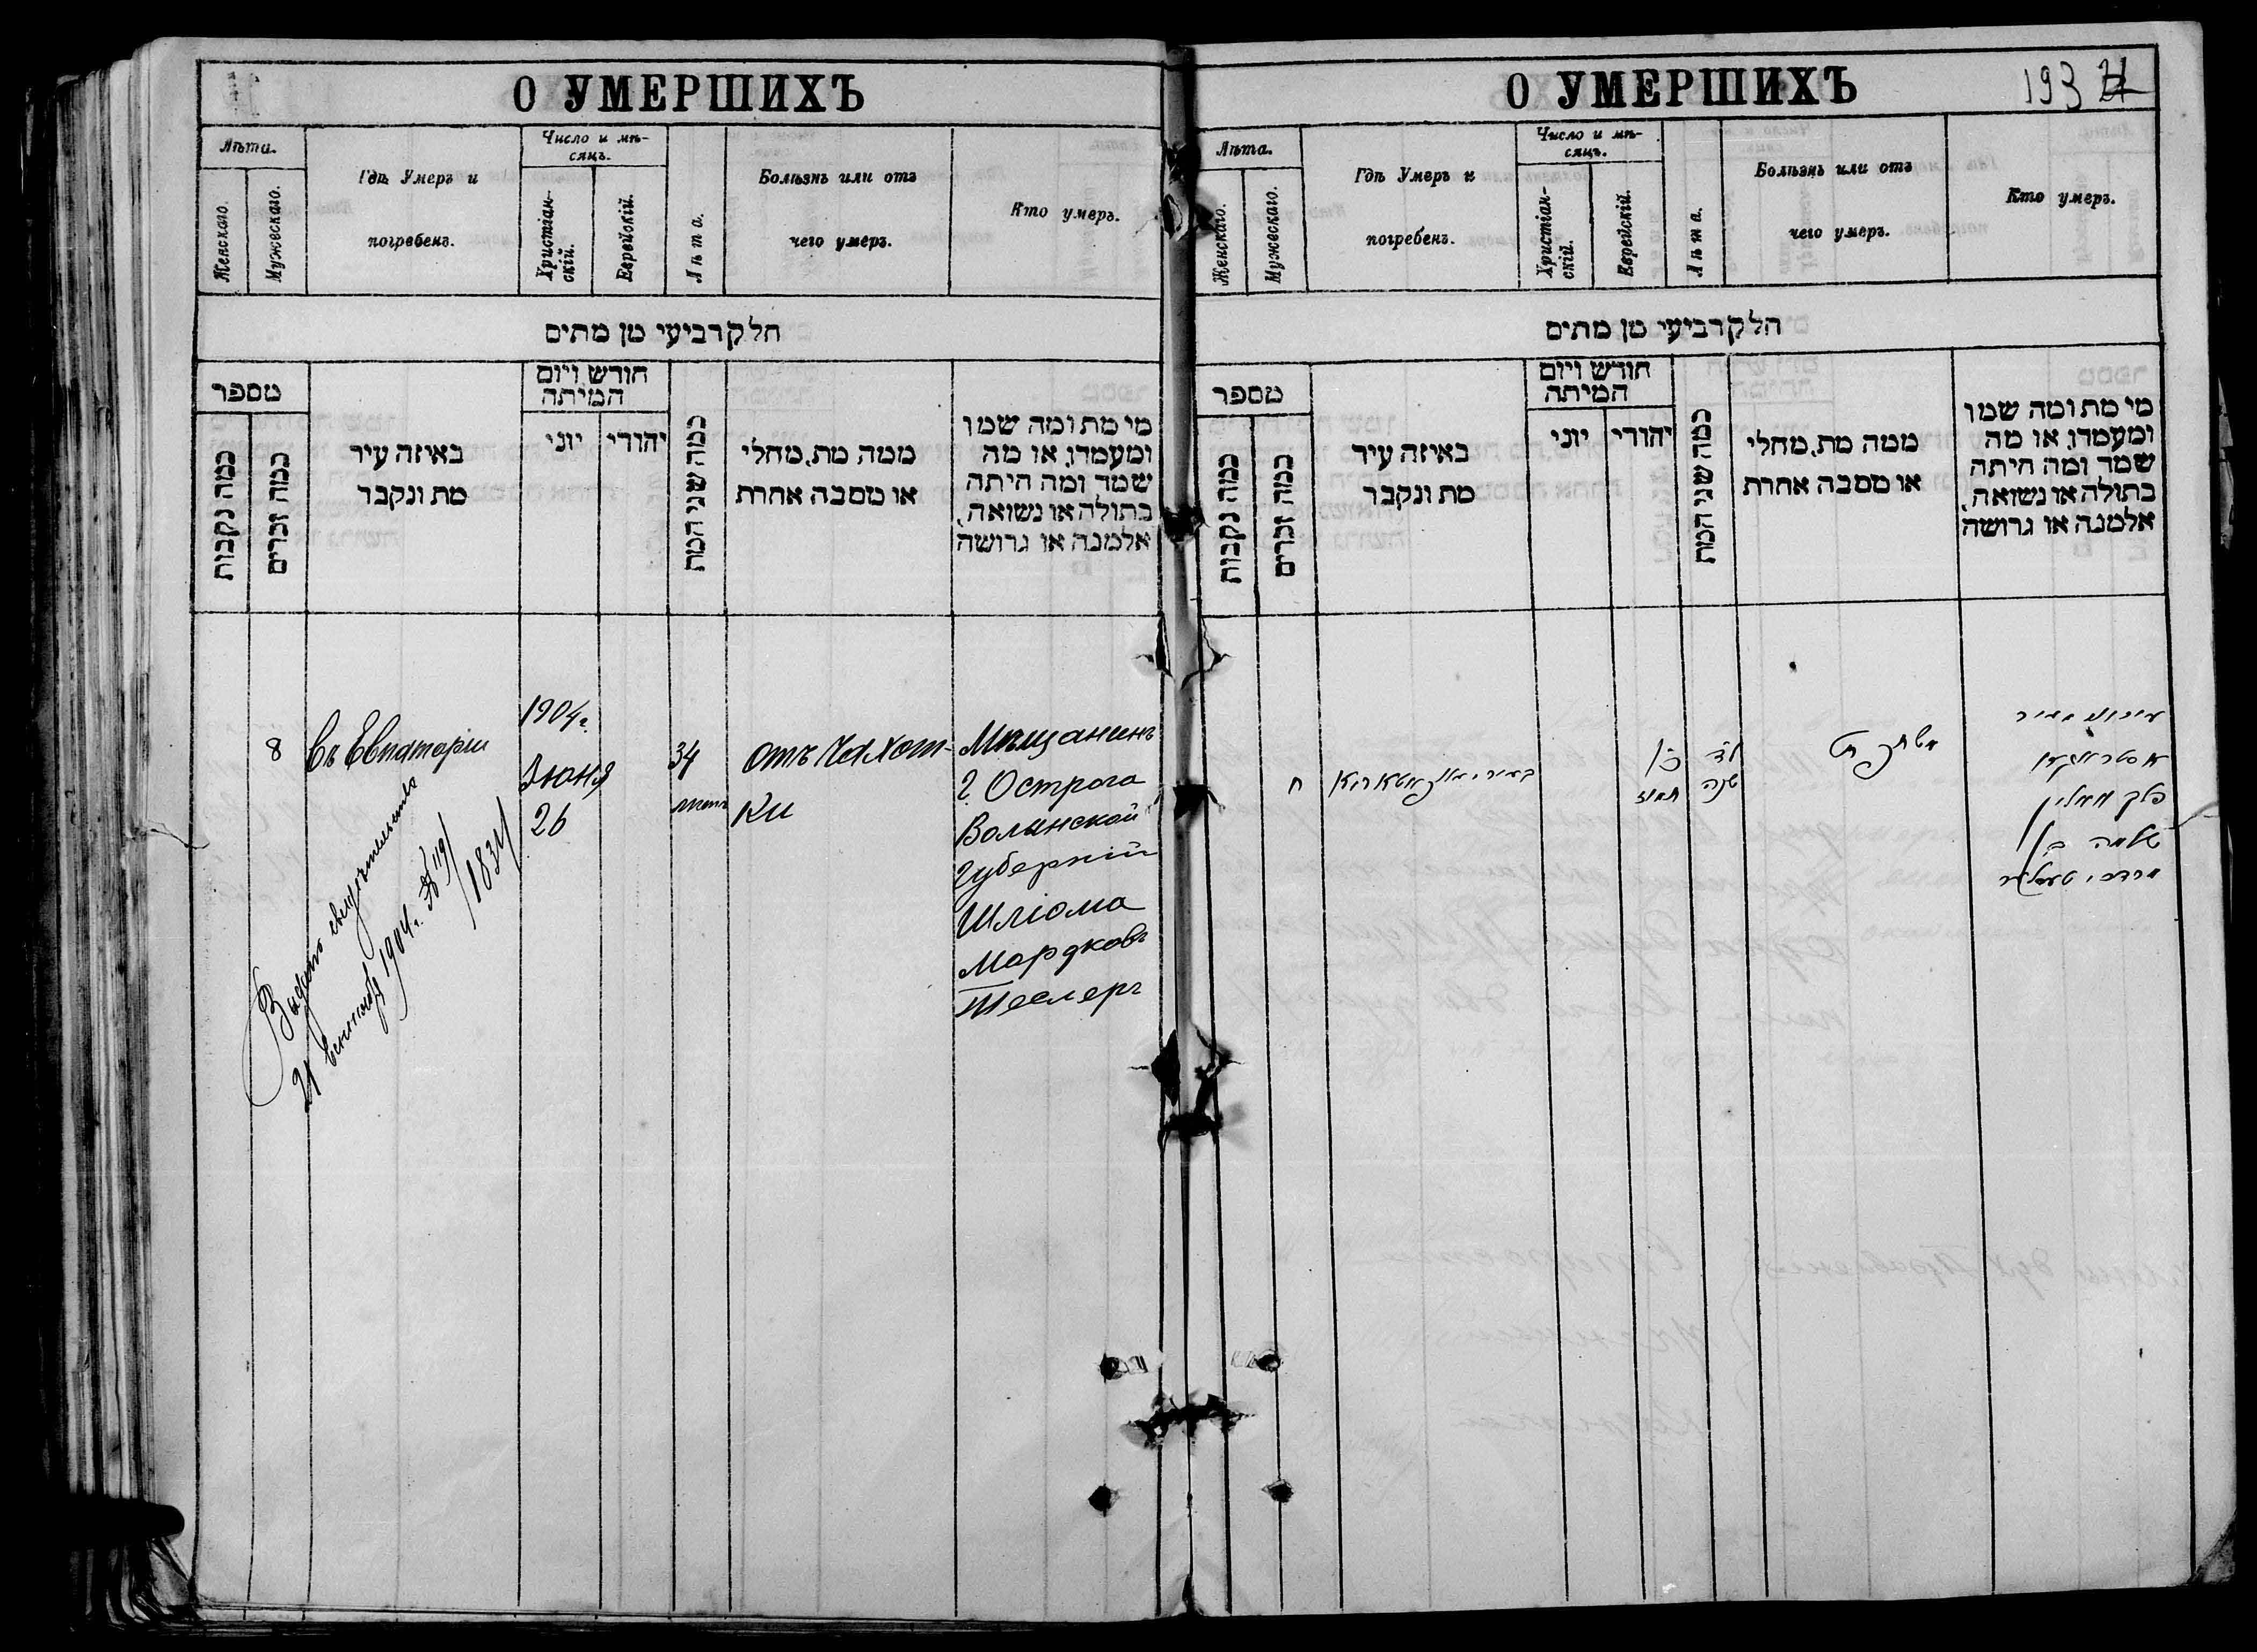 О УМЕРШИХЪ
Лѣта.
Женскаго.
Мужескаго.
Гдѣ Умеръ и
погребенъ.
Число и мѣ-
сяцъ.
Христіан-
скій.
Еврейскій.
Лѣта.
Болѣзнь или отъ
чего умеръ.
Кто умеръ.
חלק רביעי מן מתים
מספר
כמה נקבות
כמה זכרים
באיזה עיר
מת ונקבר
חודש ויום
המיתה
יוני
יהודי
כמה שני המת
ממה מת, מחלי
או מסבה אחרת
מי מת ומה שמו
ומעמדו, או מה
שמה ומה היתה
בתולה או נשואה,
אלמנה או גרושה
8
Въ Евпаторіи
1904г.
Іюня
26
34
лѣтъ
Отъ Чахот-
ки
Мѣщанинъ
г. Острога
Волынской
Губерніи
Шліома
Мордковъ
Теслеръ
Выдано свидѣтельство
21 Сентября 1904 г. №
О УМЕРШИХЪ
193
Лѣта.
Женскаго.
Мужескаго.
Гдѣ Умеръ и
погребенъ.
Число и мѣ-
сяцъ.
Христіан-
скій.
Еврейскій.
Лѣта.
Болѣзнь или отъ
чего умеръ.
Кто умеръ.
הלק רביעי מן מתים
מספר
כמה נקבות
כמה זכרים
באיזה עיר
מת ונקבר
חודש ויום
המיתה
יוני
יהודי
כמה שני המת
ממה מת, מחלי
או מסבה אחרת
מי מת ומה שמו
ומעמדו, או מה
שמה ומה היתה
בתולה או נשואה,
אלמנה או גרושה
ח
תמוז
לד
שנה
פלך וואלין
שלמה בן
מרדכי טעסלער